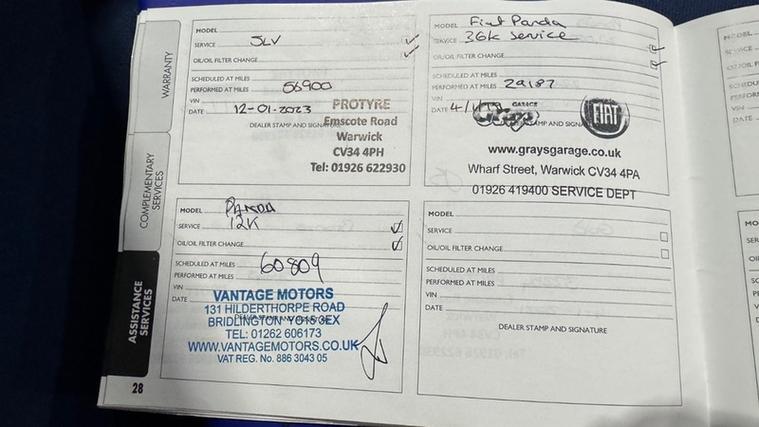 WARRANTY
COMPLEMENTARY
SERVICES
ASSISTANCE
SERVICES
28
MODEL
SERVICE SLV
OIL/OIL FILTER CHANGE
SCHEDULED AT MILES
PERFORMED AT MILES 56900
VIN
DATE 12-01-2023
DEALER STAMP AND SIGNATURE
PROTYRE
Emscote Road
Warwick
CV34 4PH
Tel: 01926 622930
MODEL Fiat Panda
SERVICE 36k Service
OIL/OIL FILTER CHANGE
SCHEDULED AT MILES
PERFORMED AT MILES 29187
VIN
DATE
GARAGE
FIAT
DEALER STAMP AND SIGNATURE
www.graysgarage.co.uk
Wharf Street, Warwick CV34 4PA
01926 419400 SERVICE DEPT
MODEL PANDA
SERVICE 12K
OIL/OIL FILTER CHANGE
SCHEDULED AT MILES
PERFORMED AT MILES 60809
VIN
DATE
VANTAGE MOTORS
131 HILDERTHORPE ROAD
DEALER STAMP AND SIGNATURE
BRIDLINGTON YO15 3EX
TEL: 01262 606173
WWW.VANTAGEMOTORS.CO.UK
VAT REG. No. 886 3043 05
MODEL
SERVICE
OIL/OIL FILTER CHANGE
SCHEDULED AT MILES
PERFORMED AT MILES
VIN
DATE
DEALER STAMP AND SIGNATURE